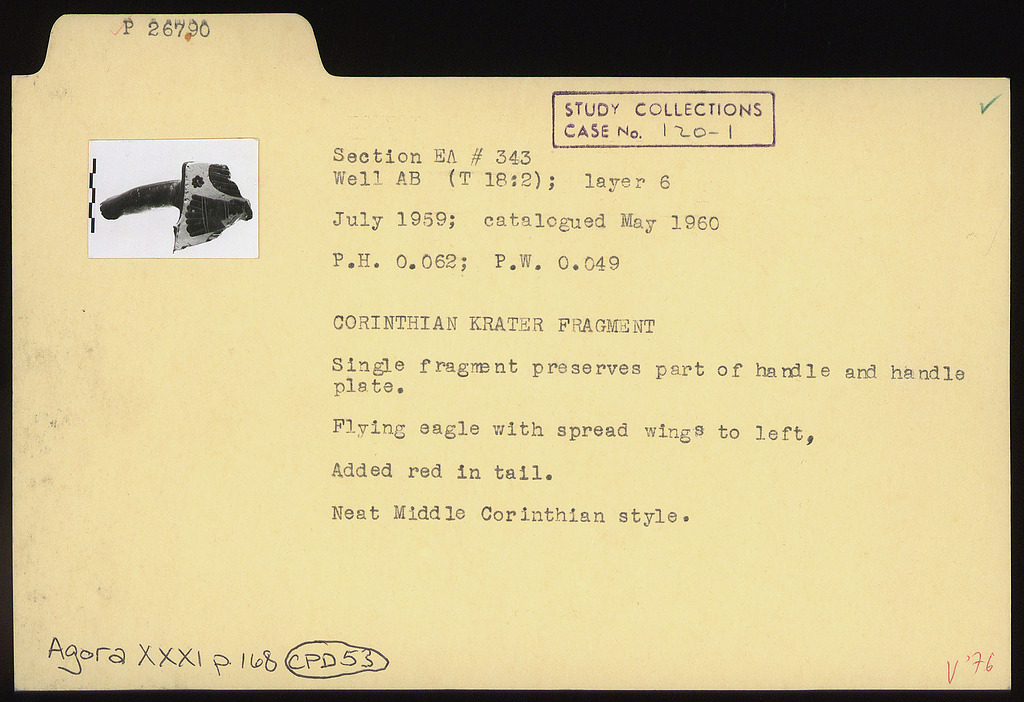 P 26790
STUDY COLLECTIONS
CASE No. 120-1
Section EΛ # 343
Well AB (T 18:2); layer 6
July 1959; catalogued May 1960
P.H. 0.062; P.W. 0.049
CORINTHIAN KRATER FRAGMENT
Single fragment preserves part of handle and handle
plate.
Flying eagle with spread wings to left,
Added red in tail.
Neat Middle Corinthian style.
Agora XXXI p. 168 CPD53
V '76